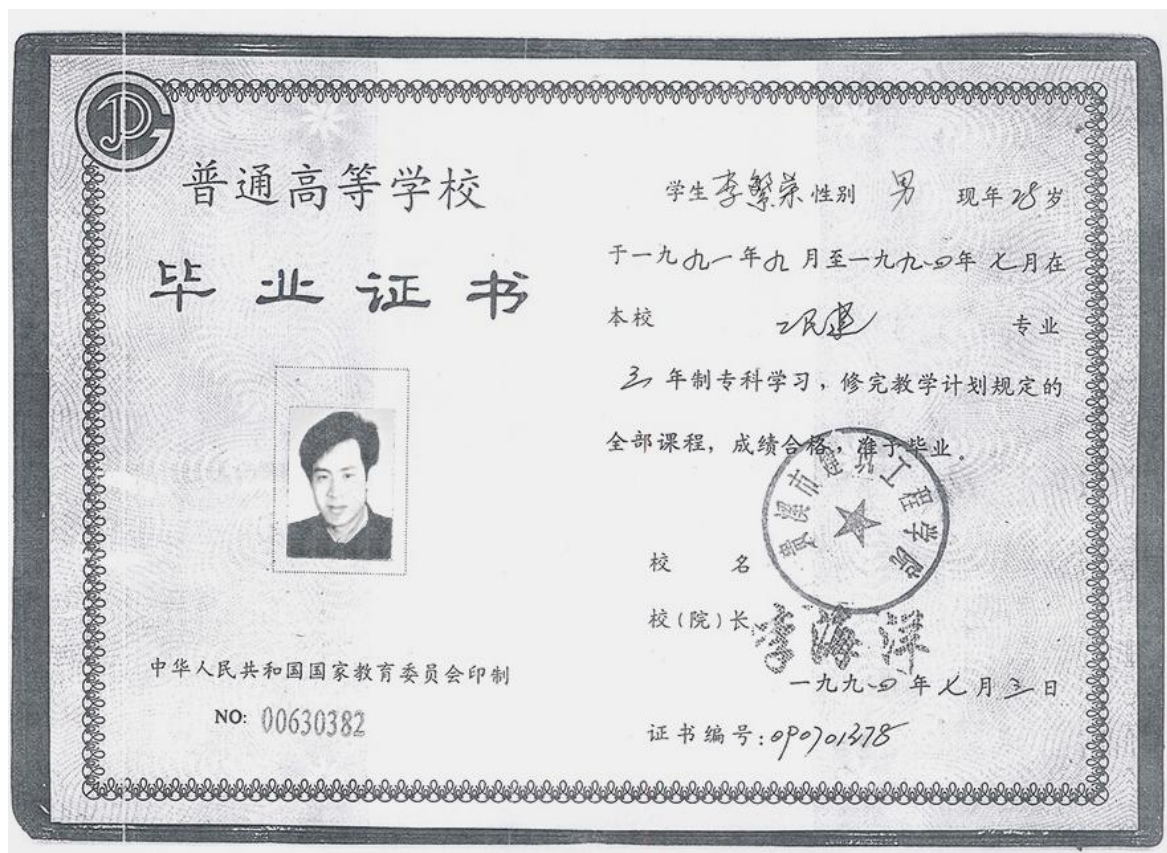 普通高等学校
毕业证书
中华人民共和国国家教育委员会印制
NO: 00630382
学生李繁荣性别 男 现年28岁
于一九九一年九月至一九九四年七月在
本校 工民建 专业
三年制专科学习，修完教学计划规定的
全部课程，成绩合格，准予毕业。
贵溪市建筑工程学院
校 名
校(院)长 李海洋
一九九四年七月三日
证书编号:090701378